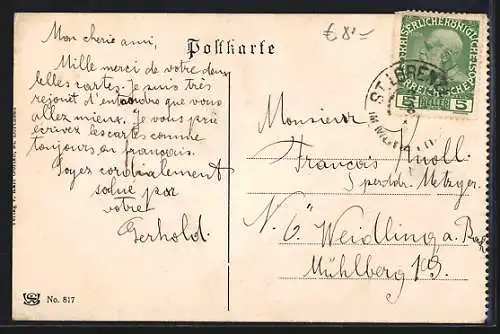 Postkarte
€ 8.-
Mon cherie ami,
Mille merci de votre deux
belles cartes. Je suis très
rejouit d'entendre que vous
allez mieux. Je vous prie
écrivez les cartes comme
toujours en français.
Soyez cordialement
salué par
votre
Gerhold.
KAISERLICHE KÖNIGLICHE
ÖSTERREICHISCHE POST
5 HELLER 5
ST. LOREN
Monsieur
François Knoll.
Metzger.
N. 6 Weidling a. Bach
Mühlberg 193.
No. 817